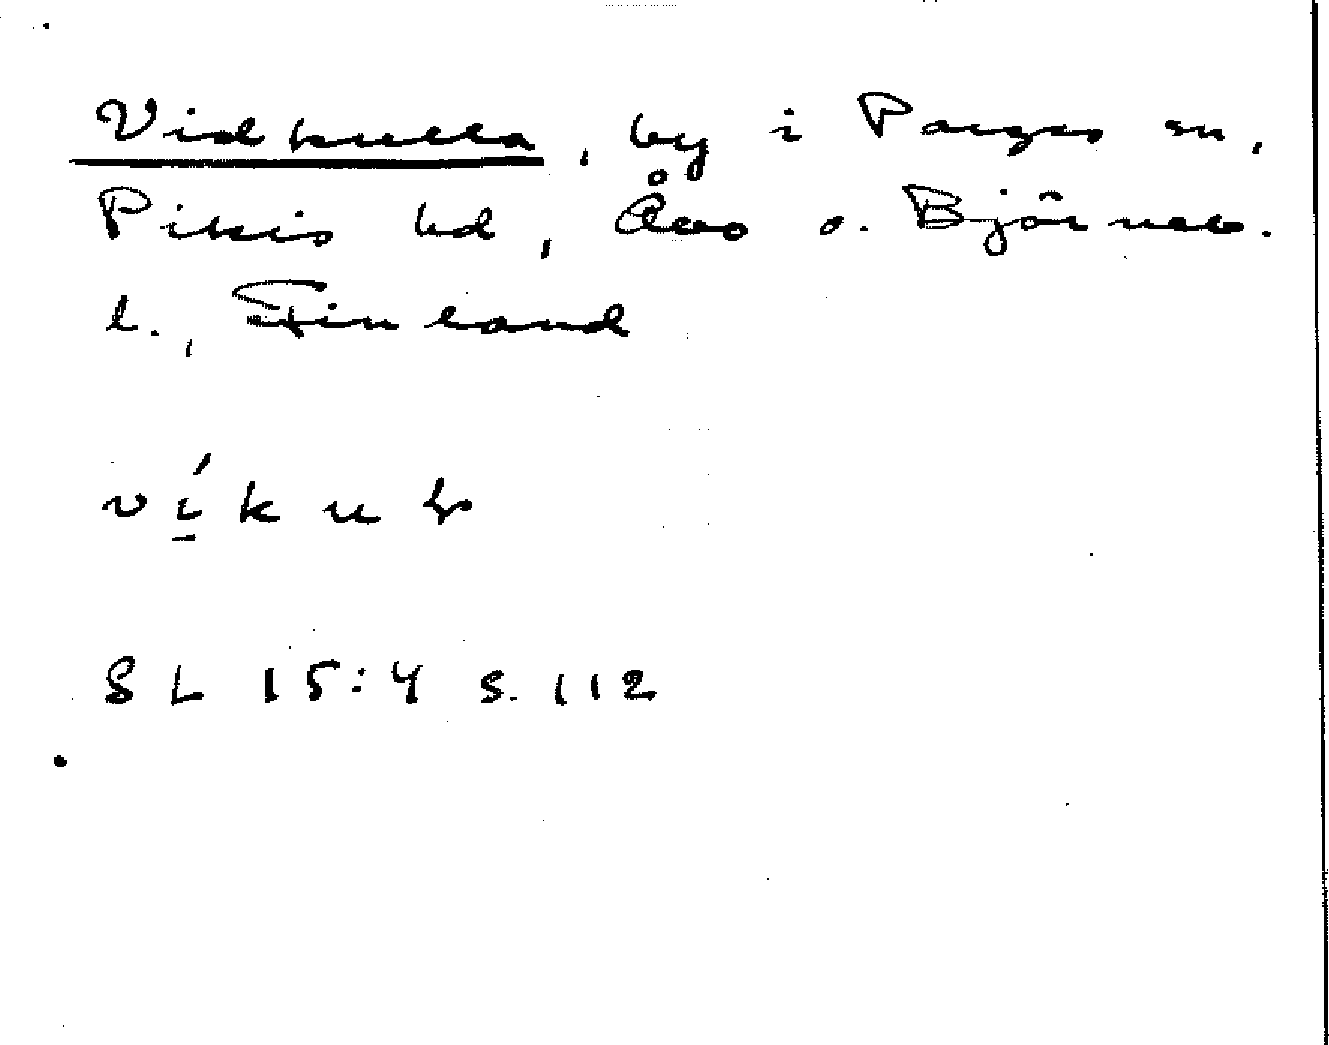 Vidkulla, by i Pargas sn,
Pikis hd, Åbo o. Björneb.
l., Finland
SL 15:4 s. 112